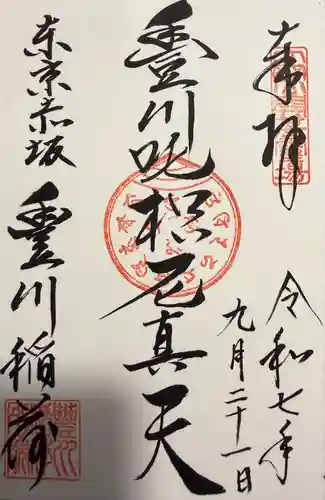 奉拝
令和七年
九月二十一日
豊川吒枳尼真天
東京赤坂
豊川稲荷